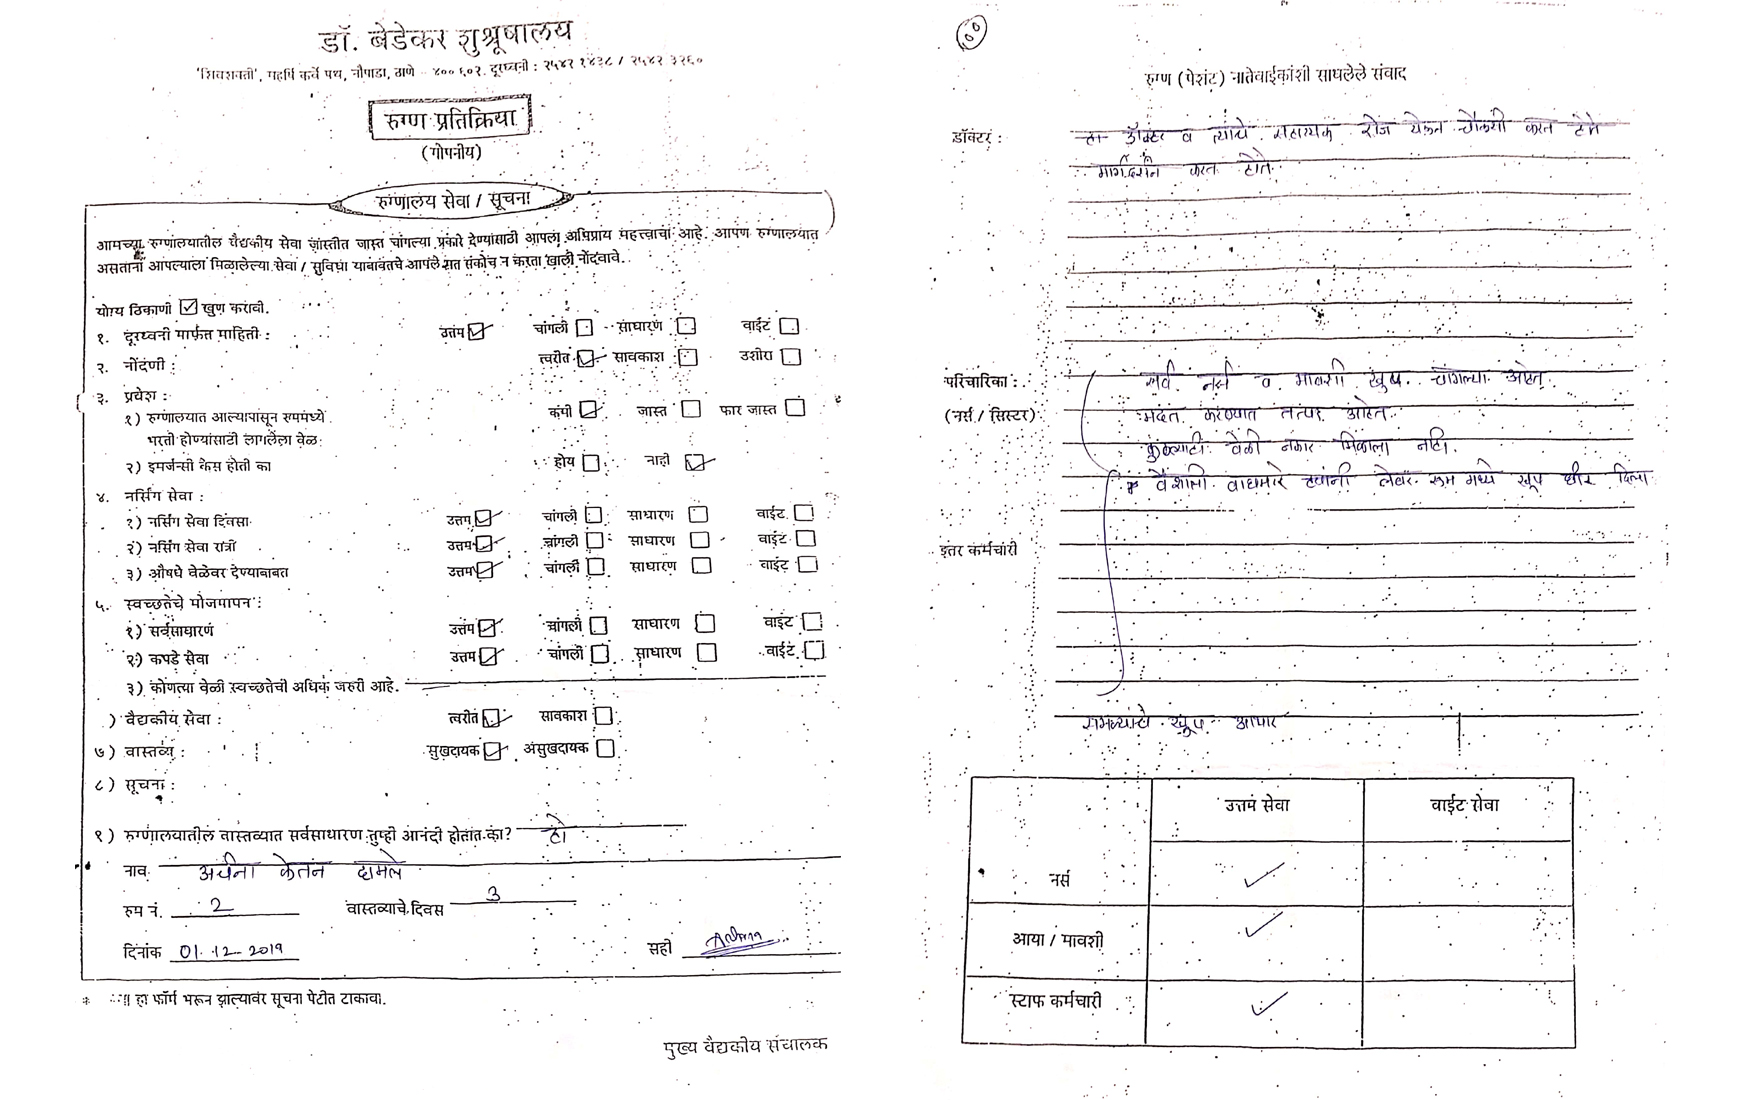 डॉ. बेडेकर शुश्रूषालय
'शिवशक्ती', महर्षि कर्वे पथ, नौपाडा, ठाणे - ४०० ६०२. दूरध्वनी : २५४२ १४३८ / २५४२ ३२६०
रुग्ण प्रतिक्रिया
(गोपनीय)
रुग्णालय सेवा / सूचना
आमच्या रुग्णालयातील वैद्यकीय सेवा जास्तीत जास्त चांगल्या प्रकारे देण्यांसाठी आपला अभिप्राय महत्त्वाचा आहे. आपण रुग्णालयात
असताना आपल्याला मिळालेल्या सेवा / सुविधा याबाबतचे आपले मत संकोच न करता खाली नोंदवावे.
योग्य ठिकाणी ☑ खुण करावी.
१. दूरध्वनी मार्फत माहिती : उत्तम ☑ चांगली ☐ साधारण ☐ वाईट ☐
२. नोंदणी : त्वरीत ☑ सावकाश ☐ उशीरा ☐
३. प्रवेश :
१) रुग्णालयात आल्यापासून रुममध्ये कमी ☑ जास्त ☐ फार जास्त ☐
भरती होण्यांसाठी लागलेला वेळ
२) इमर्जन्सी केस होती का होय ☐ नाही ☑
४. नर्सिंग सेवा :
१) नर्सिंग सेवा दिवसा उत्तम ☑ चांगली ☐ साधारण ☐ वाईट ☐
२) नर्सिंग सेवा रात्री उत्तम ☑ चांगली ☐ साधारण ☐ वाईट ☐
३) औषधे वेळेवर देण्याबाबत उत्तम ☑ चांगली ☐ साधारण ☐ वाईट ☐
५. स्वच्छतेचे मोजमापन :
१) सर्वसाधारण उत्तम ☑ चांगली ☐ साधारण ☐ वाईट ☐
२) कपडे सेवा उत्तम ☑ चांगली ☐ साधारण ☐ वाईट ☐
३) कोणत्या वेळी स्वच्छतेची अधिक जरुरी आहे.
) वैद्यकीय सेवा : त्वरीत ☑ सावकाश ☐
७) वास्तव्य : सुखदायक ☑ असुखदायक ☐
८) सूचना :
९) रुग्णालयातील वास्तव्यात सर्वसाधारण तुम्ही आनंदी होतात का? हो
नाव अर्चना केतन दामले
रुम नं. 2 वास्तव्याचे दिवस 3
दिनांक 01.12-2019 सही
* हा फॉर्म भरून झाल्यावर सूचना पेटीत टाकावा.
मुख्य वैद्यकीय संचालक
रुग्ण (पेशंट) नातेवाईकांशी साधलेले संवाद
डॉक्टर : डॉक्टर व त्यांचे सहाय्यक रोज येऊन चौकशी करत होते
मार्गदर्शन करत होते.
परिचारिका : सर्व नर्स व मावशी खुप चांगल्या आहेत.
(नर्स / सिस्टर) मदत करण्यात तत्पर आहेत.
कुठल्याही वेळी नकार मिळाला नाही.
* वैशाली वाघमारे ह्यांनी लेबर रूम मध्ये खूप धीर दिला
इतर कर्मचारी
सगळ्यांचे खूप आभार
उत्तम सेवा वाईट सेवा
नर्स ✓
आया / मावशी ✓
स्टाफ कर्मचारी ✓